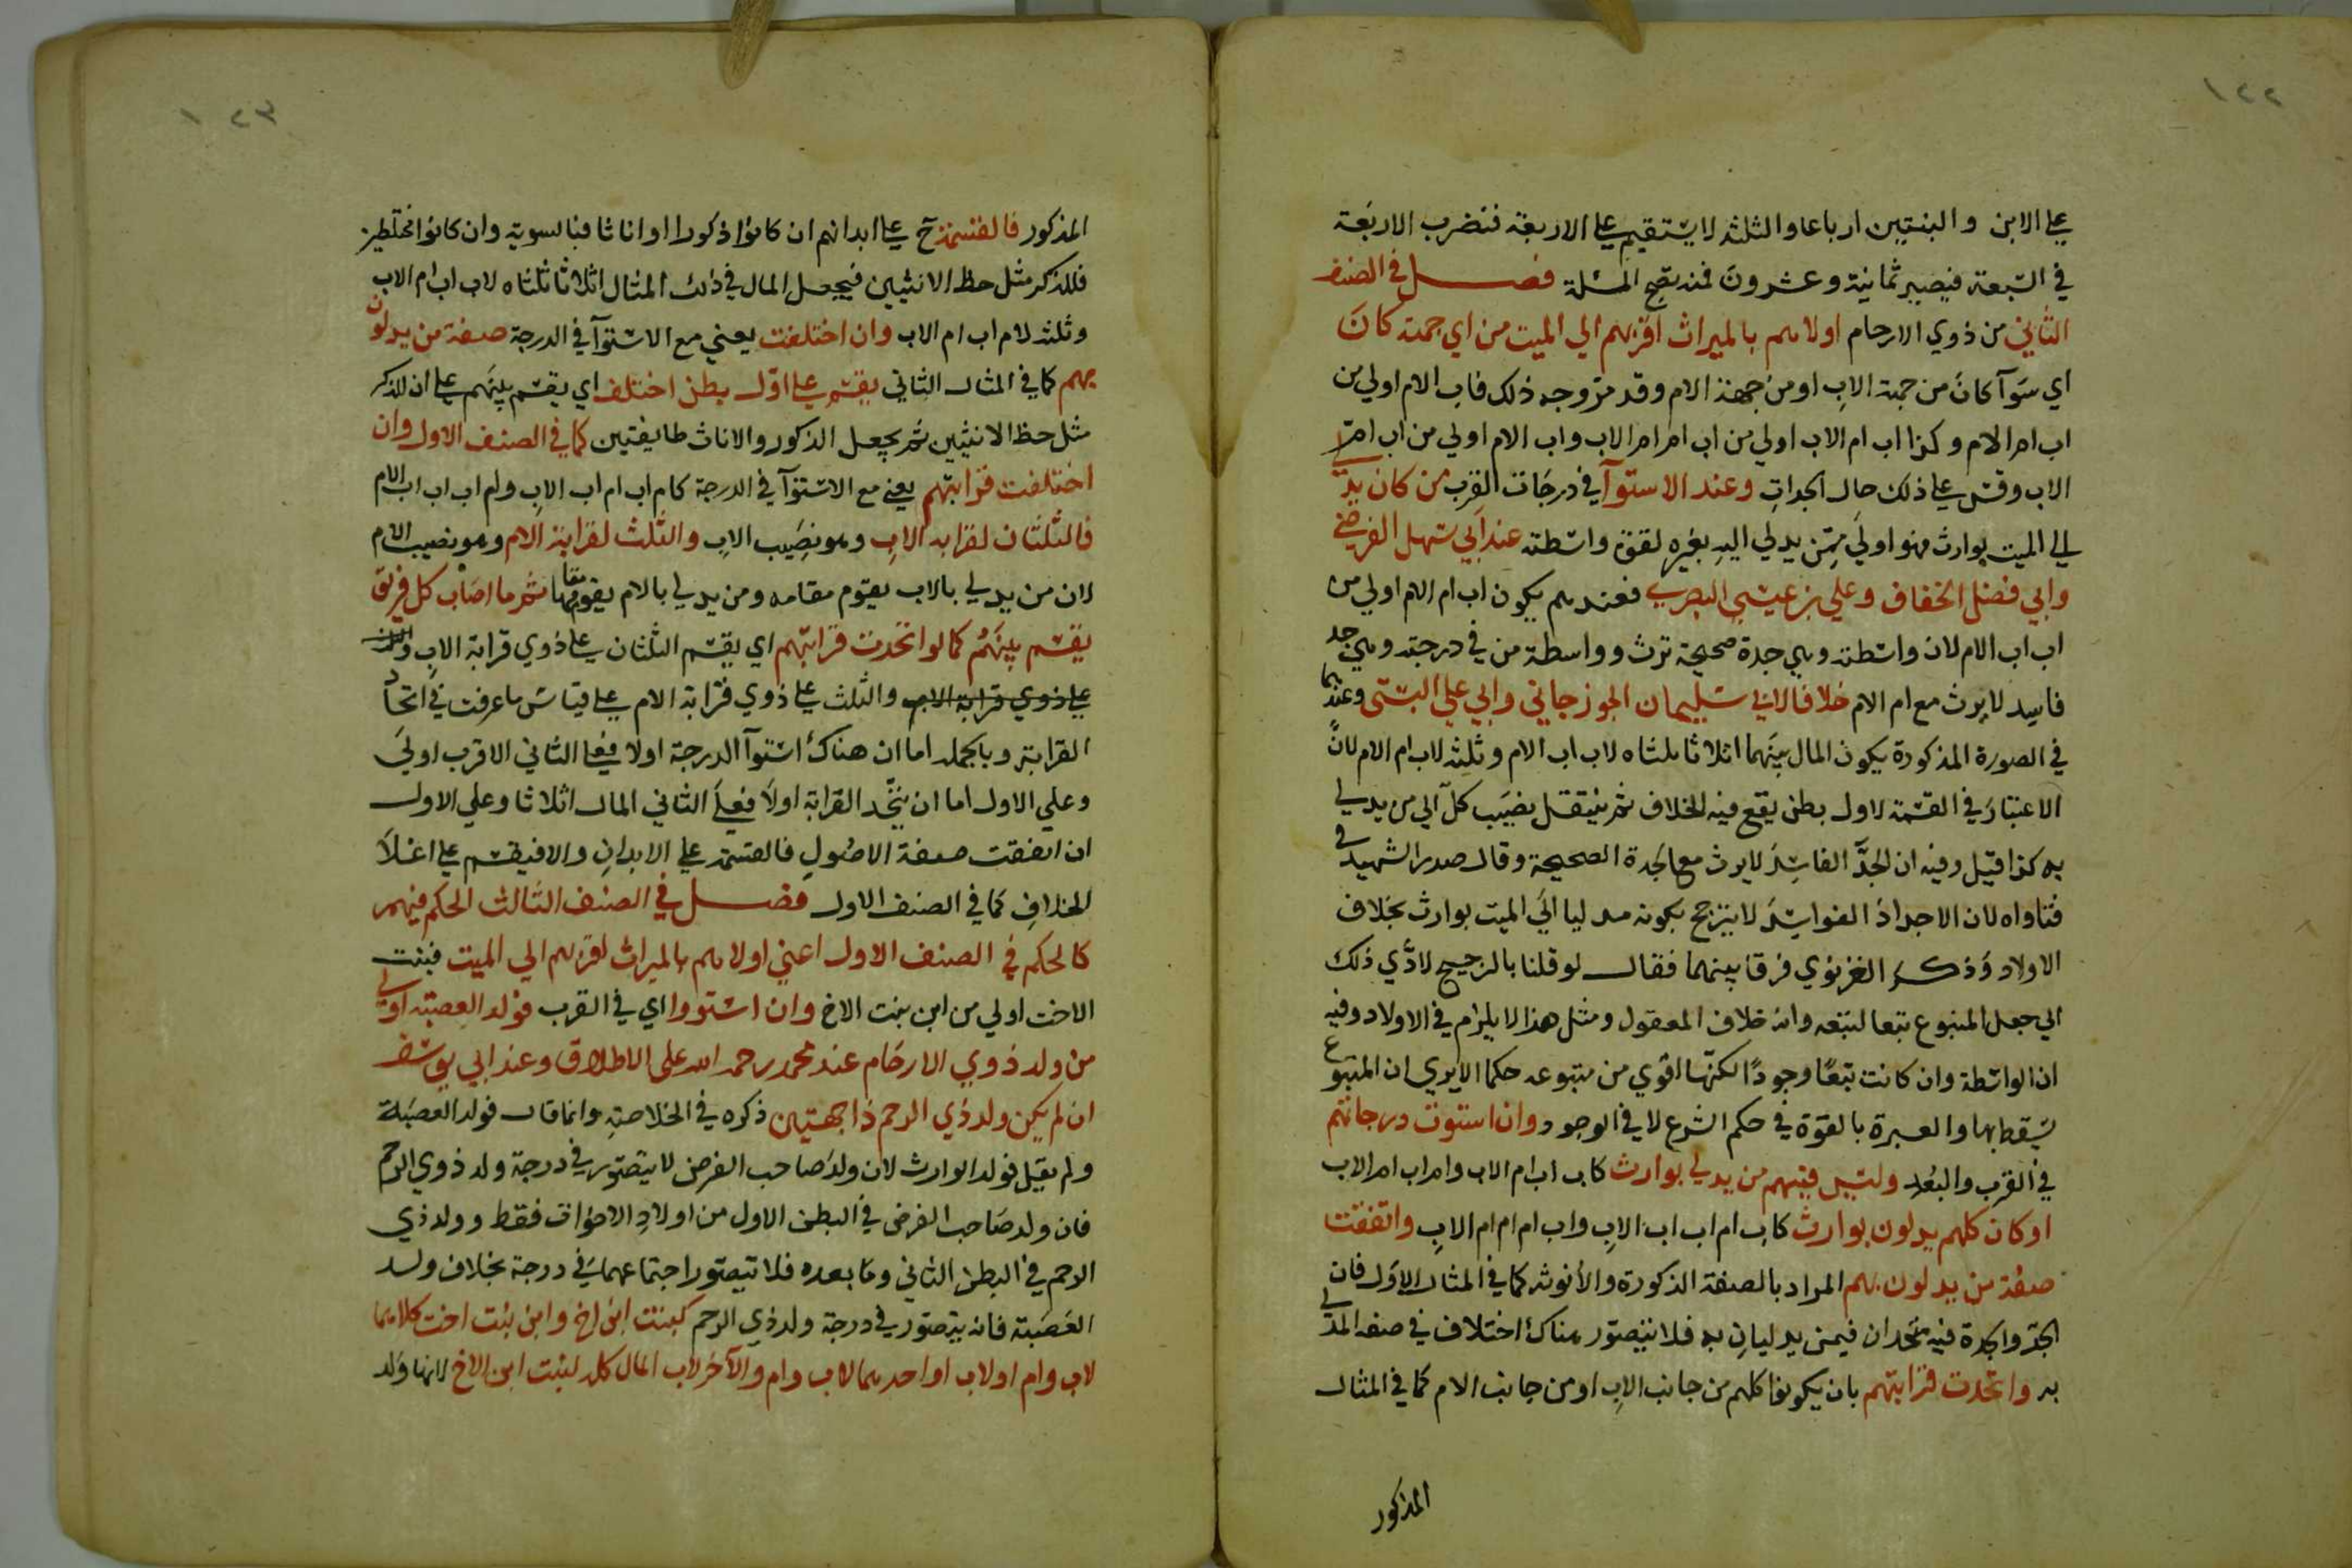 ١٢٢
على الابن والبنتين ارباعا والثلثه لايستقيم على الاربعة فنضرب الاربعة
في السبعة فيصير ثمانية وعشرون فمنه تصح المسئلة فصل في الصنف
الثاني من ذوي الارحام اولاهم بالميراث اقربهم الي الميت من اي جهة كان
اي سوآ كان من جهة الاب او من جهة الام وقد مر وجه ذلك فاب الام اولي من
اب ام الام وكذا اب ام الاب اولي من اب ام ام الاب واب الام اولي من اب ام
الاب وقس على ذلك حال الجدات وعند الاستوآ في درجات القرب من كان يدلي
الي الميت بوارث فهو اولي ممن يدلي اليه بغيره لقوة واسطته عند ابي سهل الفرضي
وابي فضل الخفاف وعلي بن عيسي البصري فعندهم يكون اب ام الام اولي من
اب اب الام لان واسطته وهي جدة صحيحة ترث وواسطة من في درجته وهي جد
فاسد لا يرث مع ام الام خلافا لابي سليمان الجوزجاني وابي علي البستي وعندهما
في الصورة المذكورة يكون المال بينهما اثلاثا ثلثاه لاب اب الام وثلثه لاب ام الام لان
الاعتبار في القسمة لاول بطن يقع فيه الخلاف ثم ينتقل نصيب كل الي من يدلي
به كذا قيل وفيه ان الجد الفاسد لايرث مع الجدة الصحيحة وقال صدر الشهيد في
فتاواه لان الاجداد الفواسد لا يترجح بكونه مدليا الي الميت بوارث بخلاف
الاولاد وذكر الغزنوي فرقا بينهما فقال لو قلنا بالترجيح لادي ذلك
الي جعل المتبوع تبعا لتبعه وانه خلاف المعقول ومثل هذا لا يلزم في الاولاد وفيه
ان الواسطة وان كانت تبعا وجودا لكنها اقوي من متبوعه حكما الايري ان المتبوع
يسقط بها والعبرة بالقوة في حكم الشرع لا في الوجود وان استوت درجاتهم
في القرب والبعد وليس فيهم من يدلي بوارث كاب اب ام الاب وام اب ام الاب
او كان كلهم يدلون بوارث كاب ام اب اب الاب واب ام ام ام الاب واتفقت
صفة من يدلون بهم المراد بالصفة الذكورة والأنوثه كما في المثال الاول فان
الجد والجدة فيه متحدان فيمن يدليان به فلا يتصور هناك اختلاف في صفة المدلي
به واتحدت قرابتهم بان يكونوا كلهم من جانب الاب او من جانب الام كما في المثال
المذكور
١٢٣
المذكور فالقسمة ح على ابدانهم ان كانوا ذكورا او اناثا فبالسوية وان كانوا مختلطين
فللذكر مثل حظ الانثيين فيجعل المال في ذلك المثال اثلاثا ثلثاه لاب اب ام الاب
وثلثه لام اب ام الاب وان اختلفت يعني مع الاستوآ في الدرجة صفة من يدلون
بهم كما في المثال الثاني يقسم على اول بطن اختلف اي يقسم بينهم على ان للذكر
مثل حظ الانثيين ثم يجعل الذكور والاناث طايفتين كما في الصنف الاول وان
اختلفت قرابتهم يعني مع الاستوآ في الدرجة كام اب ام اب الاب وام اب اب اب الام
فالثلثان لقرابة الاب وهو نصيب الاب والثلث لقرابة الام وهو نصيب الام
لان من يدلي بالاب يقوم مقامه ومن يدلي بالام يقوم مقامها ثم ما اصاب كل فريق
يقسم بينهم كما لو اتحدت قرابتهم اي يقسم الثلثان على ذوي قرابة الاب والثلث
على ذوي قرابة الام والثلث على ذوي قرابة الام على قياس ما عرفت في اتحاد
القرابة وبالجملة اما ان هناك استوآ الدرجة اولا فعلي الثاني الاقرب اولي
وعلي الاول اما ان يتحد القرابة اولا فعلي الثاني المال اثلاثا وعلي الاول
ان اتفقت صفة الاصول فالقسمة على الابدان والا فيقسم على اعلا
الخلاف كما في الصنف الاول فصل في الصنف الثالث الحكم فيهم
كالحكم في الصنف الاول اعني اولاهم بالميراث اقربهم الي الميت فبنت
الاخت اولي من ابن بنت الاخ وان استووا اي في القرب فولد العصبة اولي
من ولد ذوي الارحام عند محمد رحمه الله على الاطلاق وعند ابي يوسف
ان لم يكن ولد ذي الرحم ذا جهتين ذكره في الخلاصة وانما قال فولد العصبة
ولم يقيل فولد الوارث لان ولد صاحب الفرض لا يتصور في درجة ولد ذوي الرحم
فان ولد صاحب الفرض في البطن الاول من اولاد الاخوات فقط وولد ذي
الرحم في البطن الثاني وما بعده فلا يتصور اجتماعهما في درجة بخلاف ولد
العصبة فانه يتصور في درجة ولد ذي الرحم كبنت ابن اخ وابن بنت اخت كلاهما
لاب وام او لاب او احدهما لاب وام والآخر لاب المال كله لبنت ابن الاخ لانها ولد